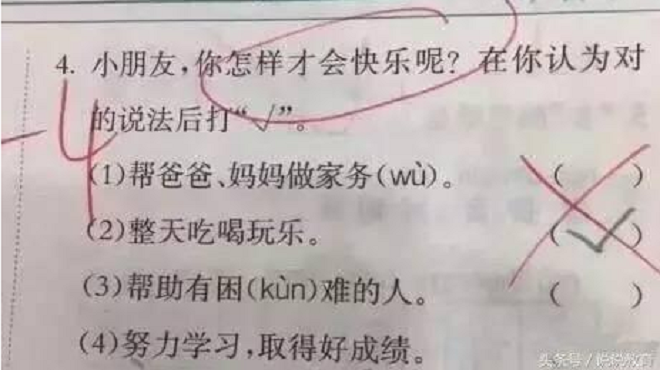 4. 小朋友,你怎样才会快乐呢? 在你认为对
的说法后打“√”。
-4
(1)帮爸爸、妈妈做家务(wù)。 ( )
(2)整天吃喝玩乐。 (√)
(3)帮助有困(kùn)难的人。 ( )
(4)努力学习,取得好成绩。
头条号/悦悦教育